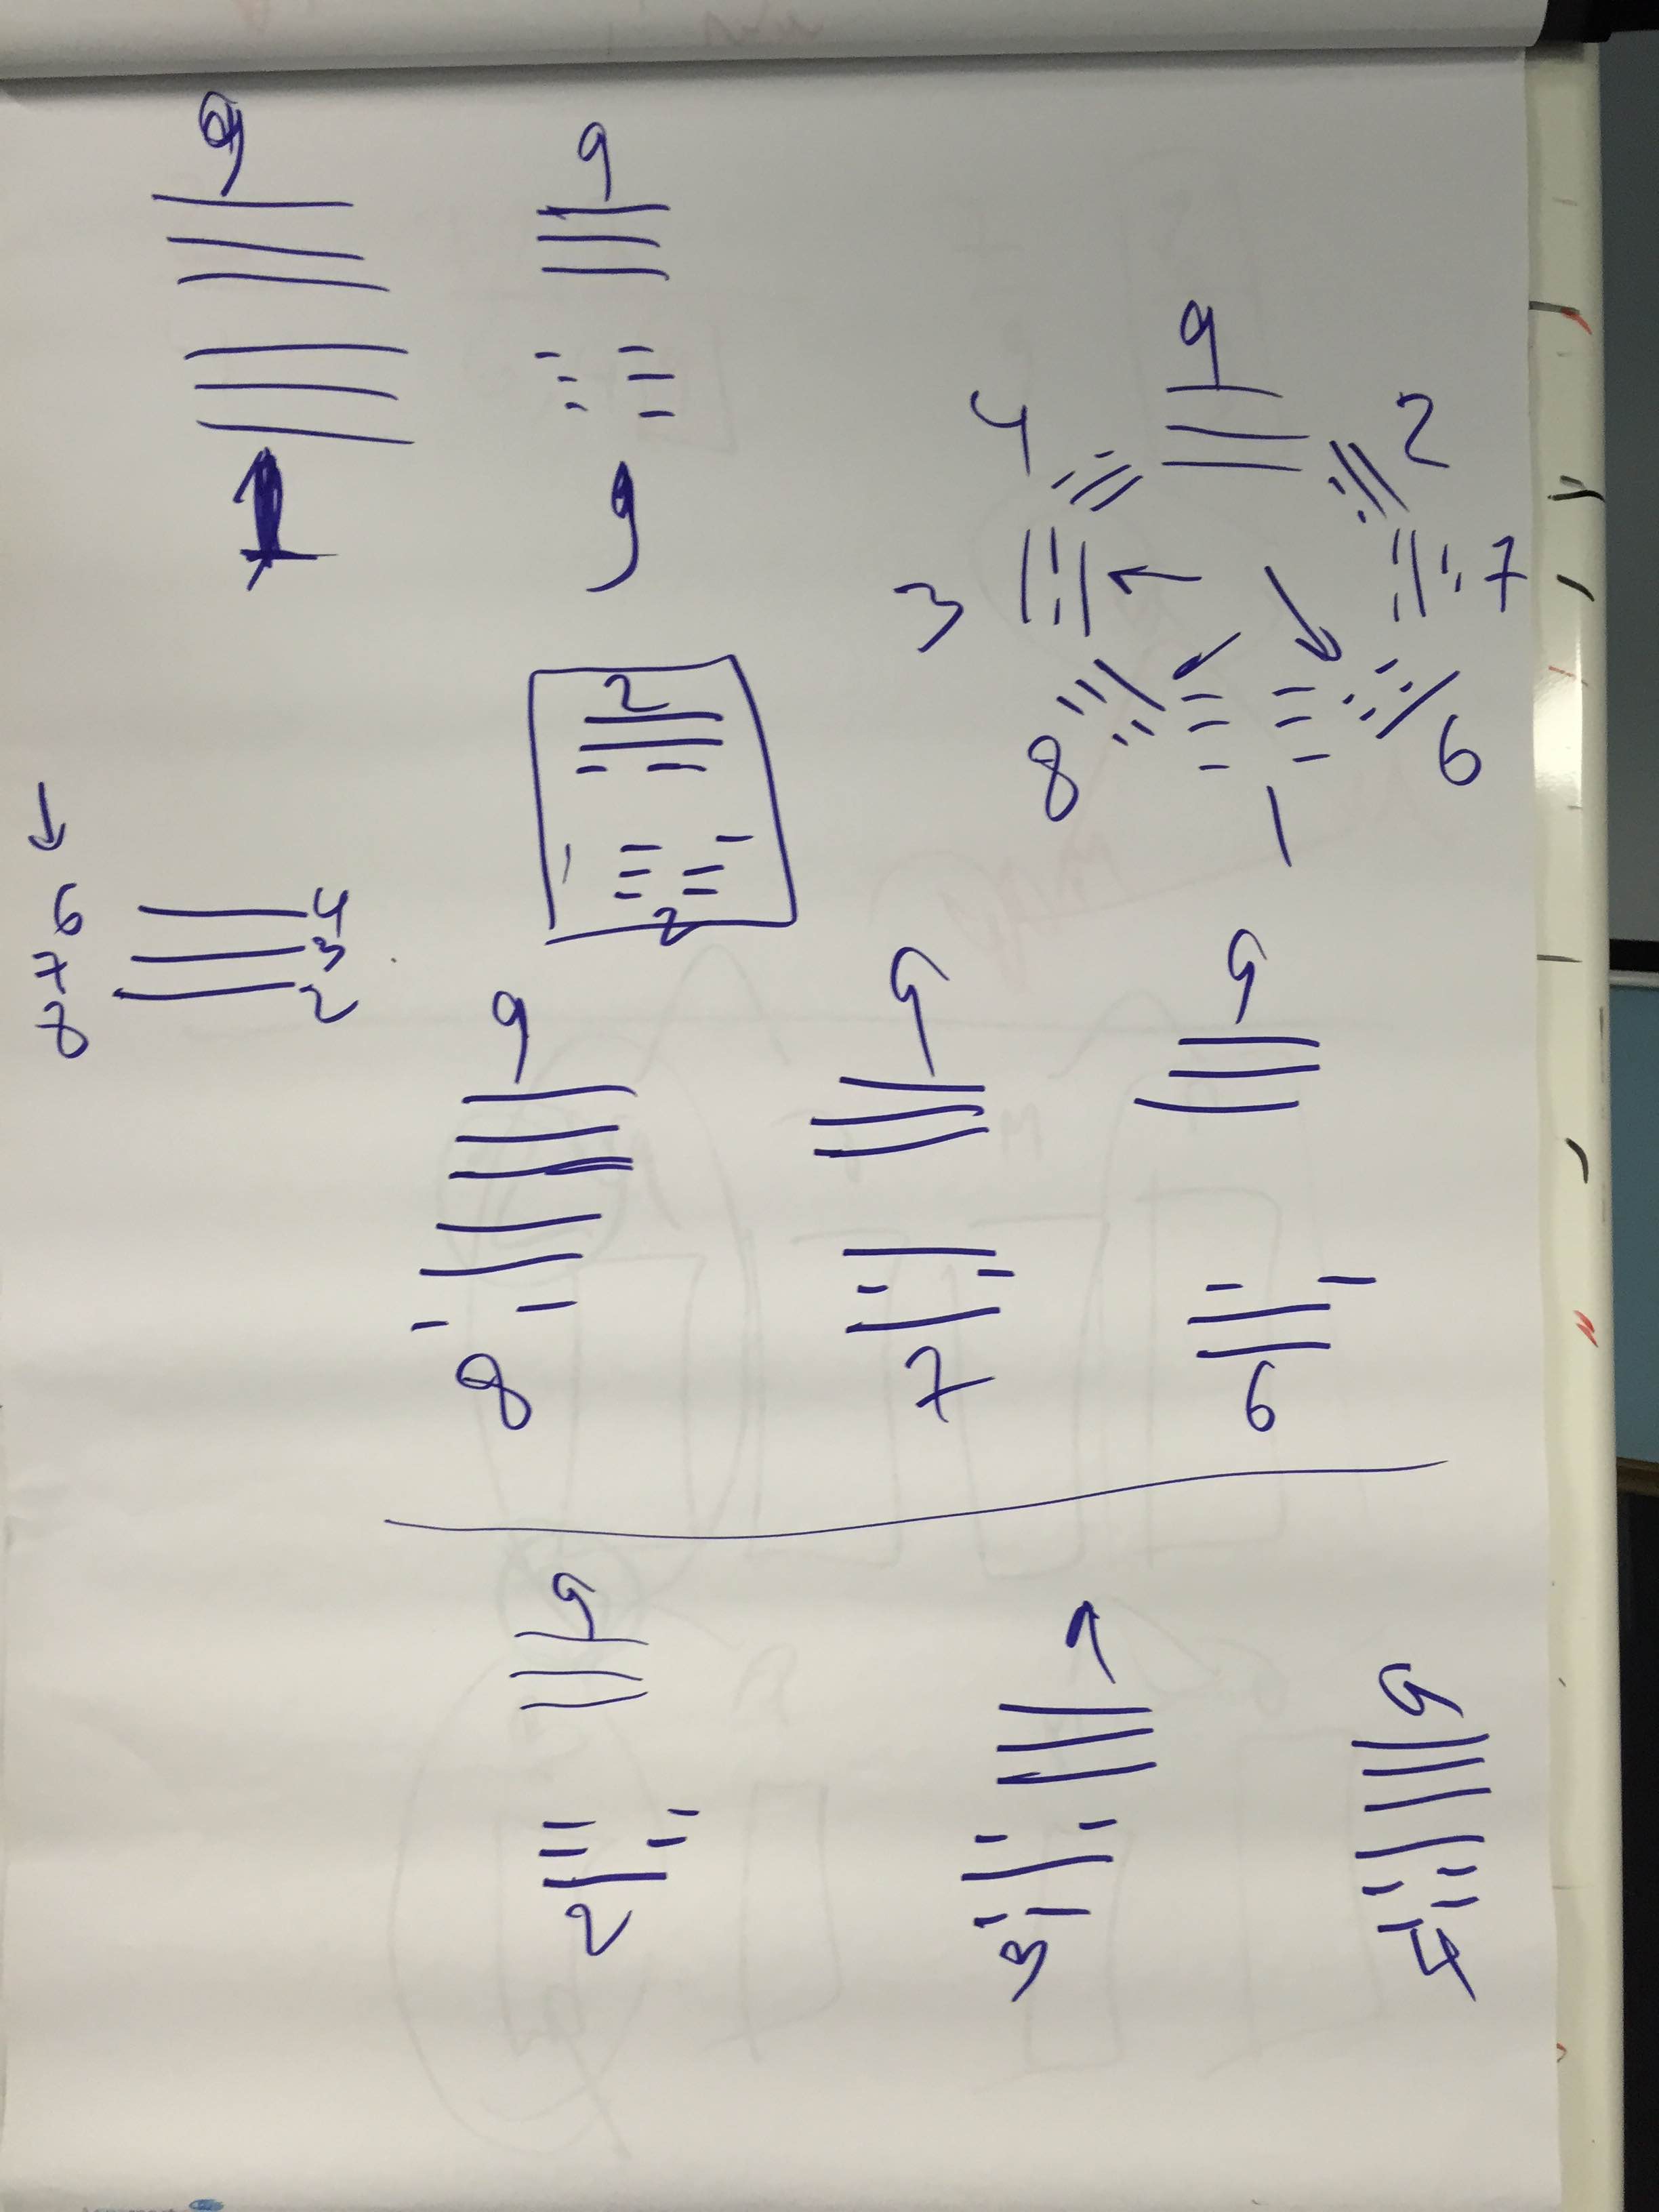 9 9
9
4 2
1 9
3 7
2
8 6
1
2
6 4
7 3
8 2
9 9 9
8 7 6
9 9 9
2 3 4